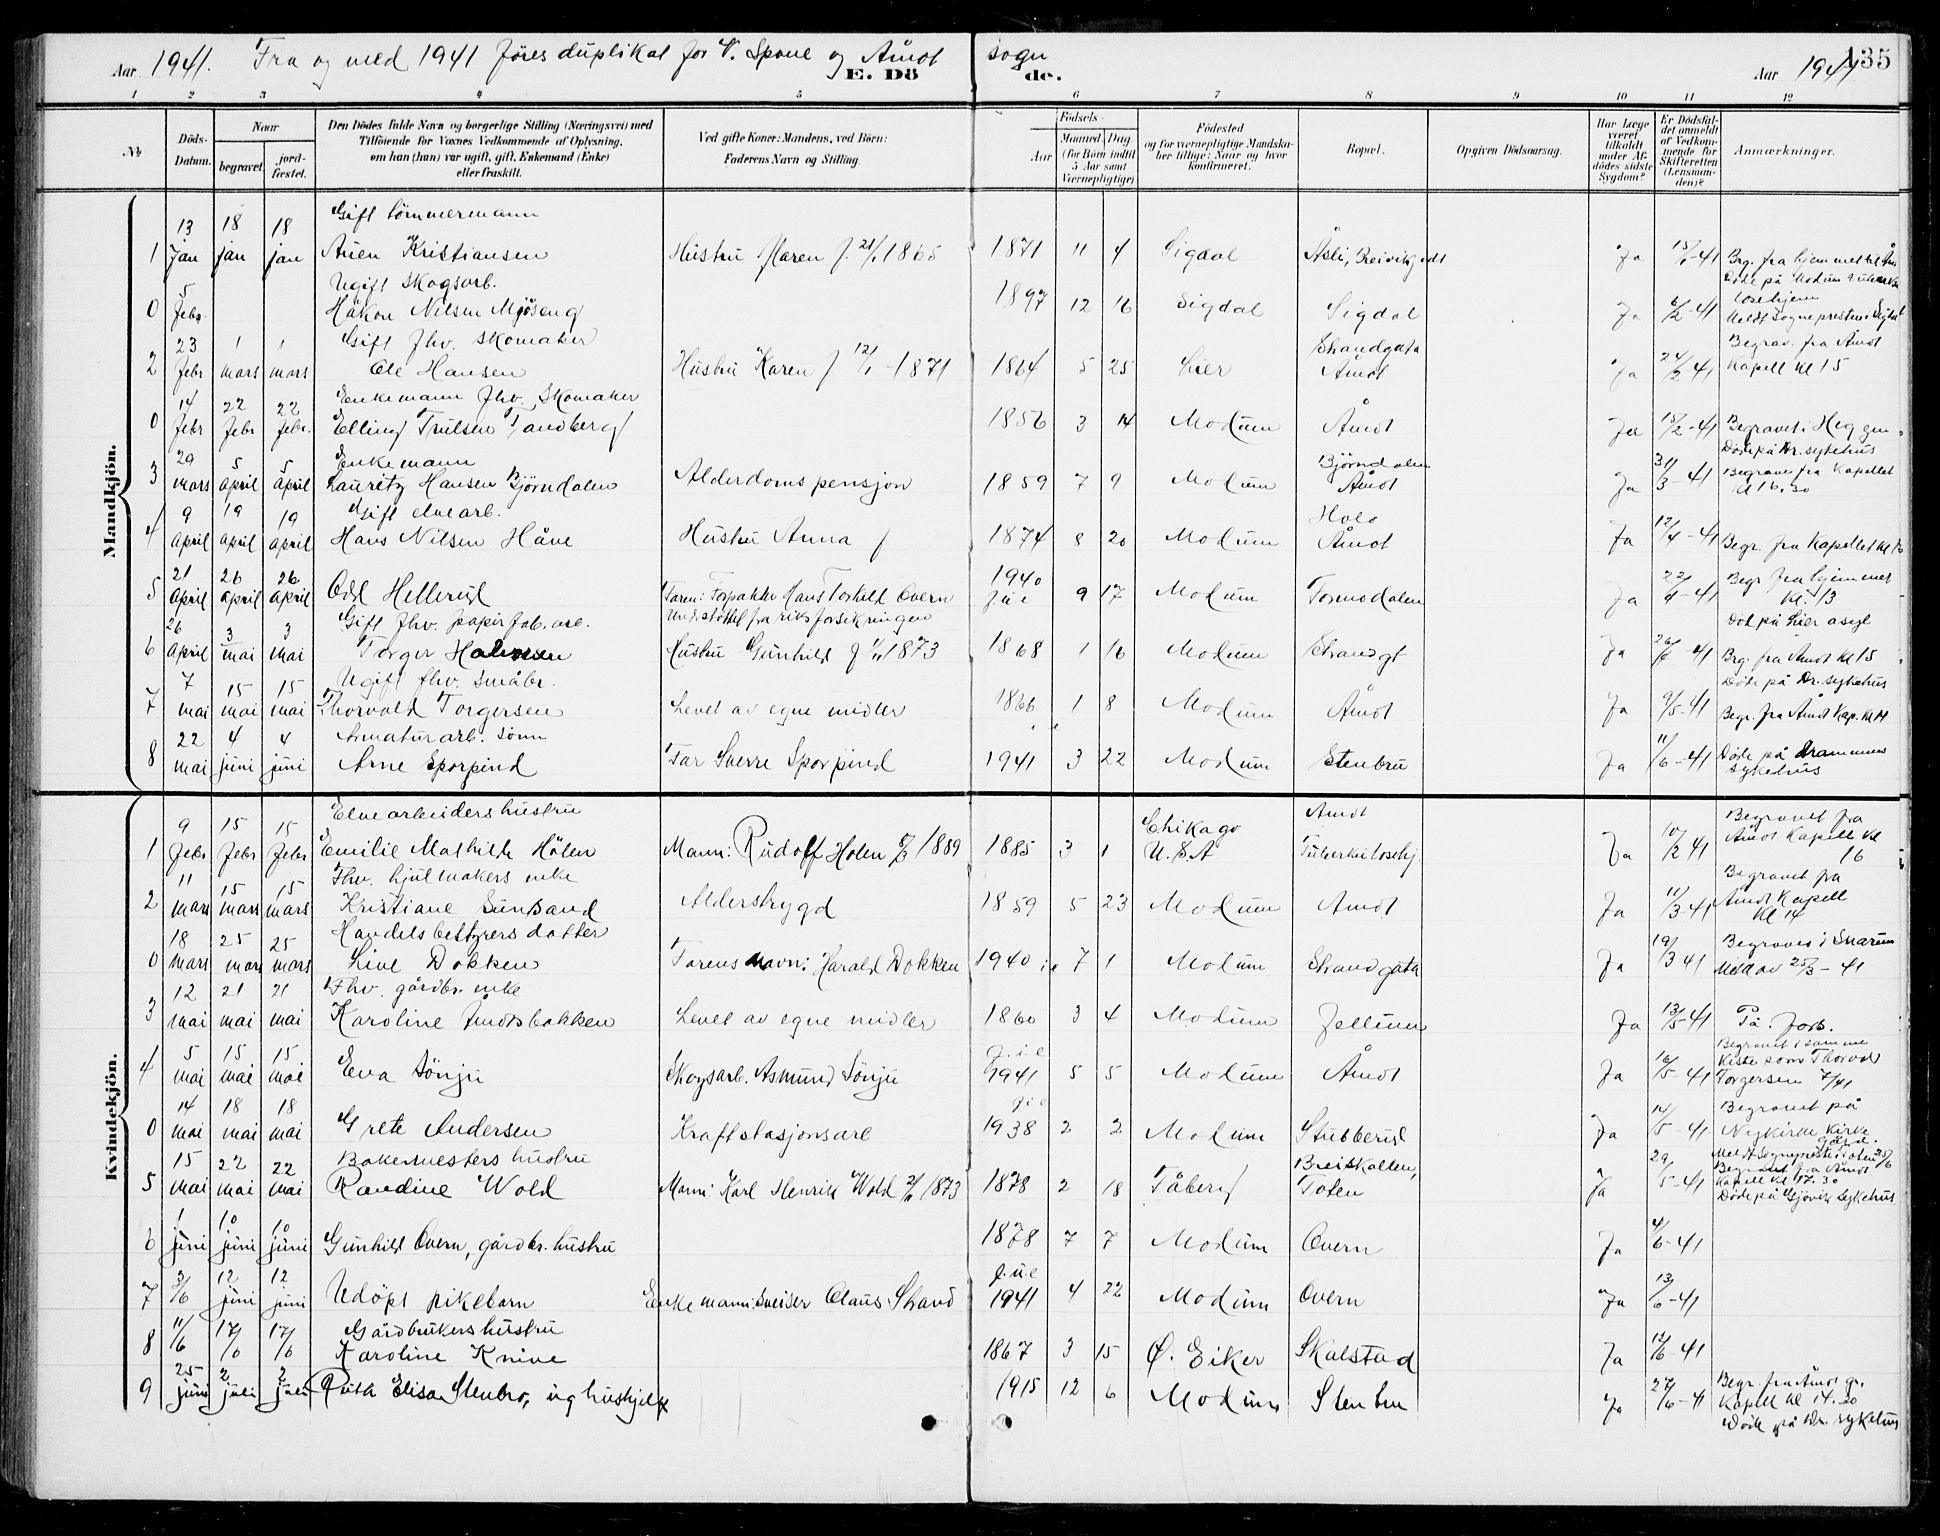 Aar 1941. Fra og med 1941 föres duplikat for V. Spone og Åmot sogn
E. Döde.
Aar 1941
135
1 2 3 4 5 6 7 8 9 10 11 12
№ Döds-Datum. Naar begravet jordfæstet. Den Dödes fulde Navn og borgerlige Stilling (Næringsvei) med Tilföiende for Voxnes Vedkommende af Oplysning, om han (hun) var ugift, gift, Enkemand (Enke) eller fraskilt. Ved gifte Koner: Mandens, ved Börn: Faderens Navn og Stilling. Födsels- Aar Maaned. Dag (for Börn indtil 5 Aar samt Værnepligtige) Födested og for værnepligtige Mandskaber tillige: Naar og hvor konfirmeret. Bopæl. Opgiven Dödsaarsag. Har Læge været tilkaldt under Afdödes sidste Sygdom? Er Dödsfaldet anmeldt af Vedkommende for Skifteretten (Lensmanden)? Anmærkninger.
Mandkjön.
Gift tömmermann
1 13 jan 18 jan 18 jan Auen Kristiansen Hustru Maren f. 21/1 1865 1871 11 4 Sigdal Åsli, Breivikgodt Ja 15/1-41 Brg. fra hjemmet til
Ugift Skogsarb.
0 5 Febr. Håkon Nilsen Mjöseng 1897 12 16 Sigdal Sigdal Ja 6/2-41 Döde på Modum tuberkulosehjem Meldt Sogneprest i Sigdal
Gift fhv. skomaker
2 23 febr 1 mars 1 mars Ole Hansen Hustru Karen f 12/1-1871 1864 5 25 Lier Strandgata Åmot Ja 24/2-41 Begrav. fra Åmot Kapell kl 15
Enkemann fhv. Skomaker
0 14 febr 22 febr 22 febr. Elling Trulsen Sandberg 1856 3 14 Modum Åmot Ja 15/2-41 Begravet i Heggen
Enkemann
3 29 mars 5 april 5 april Lauritz Hansen Björndalen Alderdomspensjon 1859 7 9 Modum Björndalen Åmot Ja 31/3-41 Döde på Dr. sykehus Begraves fra Kapellet kl 16.30
Gift elvearb.
4 9 april 19 april 19 april Hans Nilsen Håve Hustru Anna f 1874 8 20 Modum Holo Åmot Ja 12/4-41 Begr. fra Kapellet kl
5 21 april 26 april 26 april Odd Hellerud Faren: Forpakter Hans Torkild Overn 1940 f.u.e 9 17 Modum Tormodalen Ja 22/4-41 Begr fra hjemmet kl. 13
Gift fhv. papirfab. arb. Understöttet fra riksforsikringen
6 26 april 3 mai 3 mai Torger Halvorsen Hustru Gunhild f 1/11 1873 1868 1 16 Modum Strandgt Ja 26/4-41 Död på Lier asyl Brg. fra Åmot kl 15
Ugift fhv. småbr.
7 7 mai 15 mai 15 mai Thorvald Torgersen Levet av egne midler 1866 1 8 Modum Åmot Ja 9/5-41 Döde på Dr. sykehus Begr. fra Åmot Kap. kl 14
Armaturarb. sönn
8 22 mai 4 juni 4 juni Arne Sporpind Far Sverre Sporpind 1941 3 22 Modum Stenbru Ja 11/6-41 Döde på Drammens sykehus
Kvindekjön.
Elvearbeiders hustru
1 9 febr 15 febr 15 febr Emilie Mathilde Hölen Mann: Rudolf Holen 1889 1885 3 1 Chikago U.S.A Åmot Tuberkulosehj. Ja 10/2 41 Begravet fra Åmot Kapell kl 16
Fhv. hjulmakers enke
2 11 mars 15 mars 15 mars Kristiane Sunsand Alderstrygd 1859 5 23 Modum Åmot Ja 11/3-41 Begravet fra Åmot Kapell kl 14
Handelsbestyrers datter
0 18 mars 25 mars 25 mars Live Dokken Farens navn: Harald Dokken 1940 7 1 Modum Strandgata Ja 19/3 41 Begraves i Snarum Melda 25/3-41
Fhv. gårdbr. enke
3 12 mai 21 mai 21 mai Karoline Åmotsbakken Levet av egne midler 1860 3 4 Modum Jellum Ja 13/5-41 På. Jorb.
4 5 mai 15 mai 15 mai Eva Sönju Skogsarb. Asmund Sönju f.i.e 1941 5 5 Modum Åmot Ja 16/5-41 Begravet i samme kiste som Thorvald Torgersen 7/41
0 14 mai 18 mai 18 mai Grete Andersen Kraftstasjonsarb 1938 2 2 Modum Stubberud Ja 14/5-41 Begravet på Nykirke Kirkegård.
Bakermesters hustru
5 15 mai 22 mai 22 mai Randine Wold Mann: Karl Henrik Wold 1873 1878 2 18 Fåberg Breiskallen, Toten Ja 29/5-41 Meldt Sogneprest i Toten 25/6 Begravet fra Åmot Kapell kl 17.30 Döde på Gjövik Sykehus
6 1 juni 10 juni 10 juni Gunhild Overn, gårdbr. hustru 1878 7 7 Modum Overn Ja 4/6-41
7 3/6 12 juni 12 juni Udöpt pikebarn Enkemann: sveiser Claus Strand f.u.e 1941 4 22 Modum Overn Ja 13/6-41
Gårdbrukers hustru
8 11/6 17/6 17/6 Karoline Knive 1867 3 15 Ø. Eiker Skalstad Ja 12/6-41
9 25 juni 2 juli 2 juli Ruth Elisa Stenbro, ug hushjelp 1915 12 6 Modum Stenbru Ja 27/6-41 Begr. fra Åmot gr. Kapell kl 14.30 Döde på Dr. sykehus